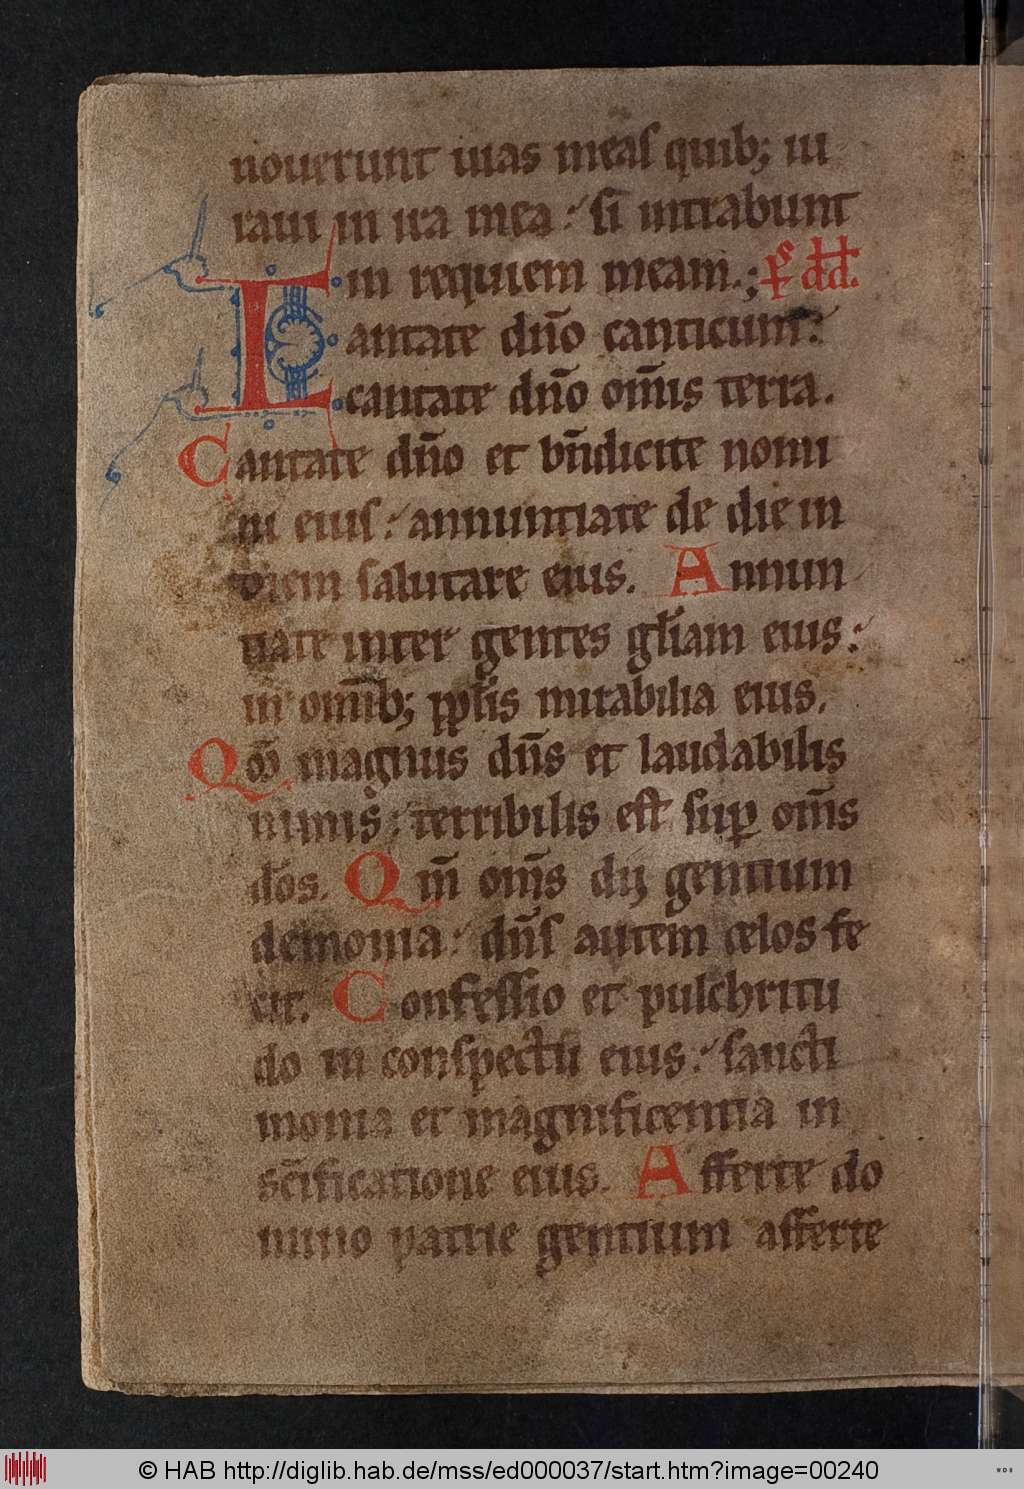 nouerunt uias meas quib; iu
raui in ira mea: si intrabunt
in requiem meam.; ps dd.
Lantate dn̄o canticum:
cantate dn̄o om̄is terra.
Cantate dn̄o et bn̄dicite nomi
ni eius: annuntiate de die in
diem salutare eius. Annun
tiate inter gentes gl̄iam eius:
in om̄ib; ppl̄is mirabilia eius.
Qm̄ magnus dn̄s et laudabilis
nimis: terribilis est sup om̄s
deos. Qm̄ om̄s dij gentium
demonia: dn̄s autem celos fe
cit. Confessio et pulchritu
do in conspectu eius: sancti
monia et magnificentia in
sc̄ificatione eius. Afferte do
mino patrie gentium afferte
© HAB http://diglib.hab.de/mss/ed000037/start.htm?image=00240